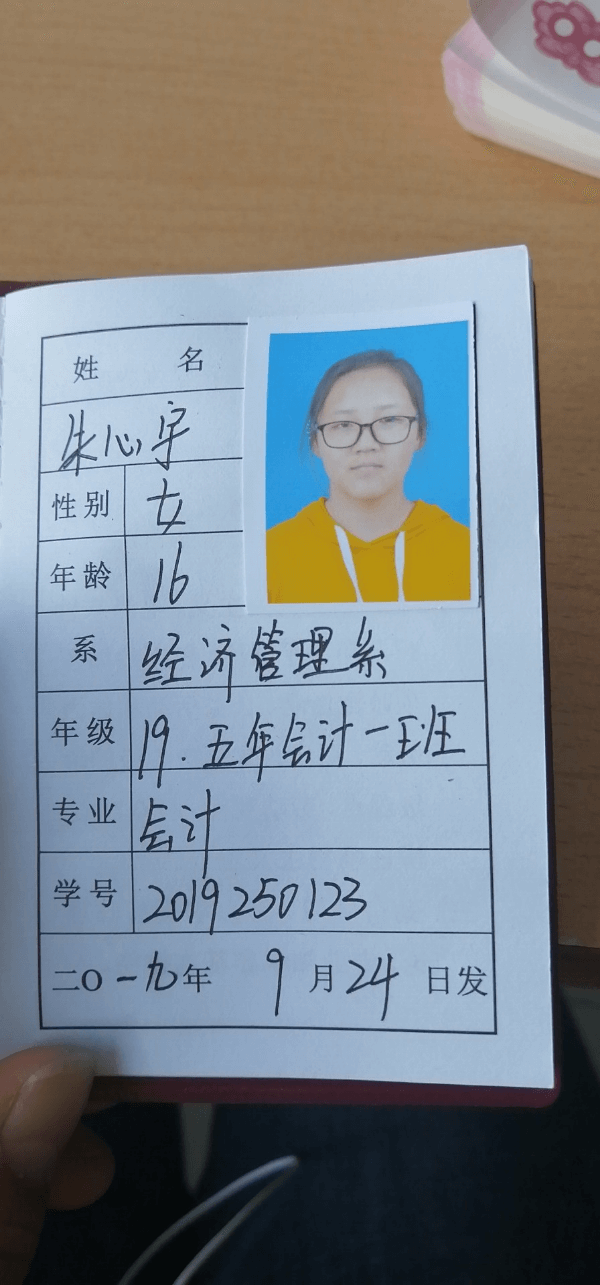 姓 名
朱心宇
性别 女
年龄 16
系 经济管理系
年级 19.五年会计一班
专业 会计
学号 2019250123
二〇一九年 9月24日发